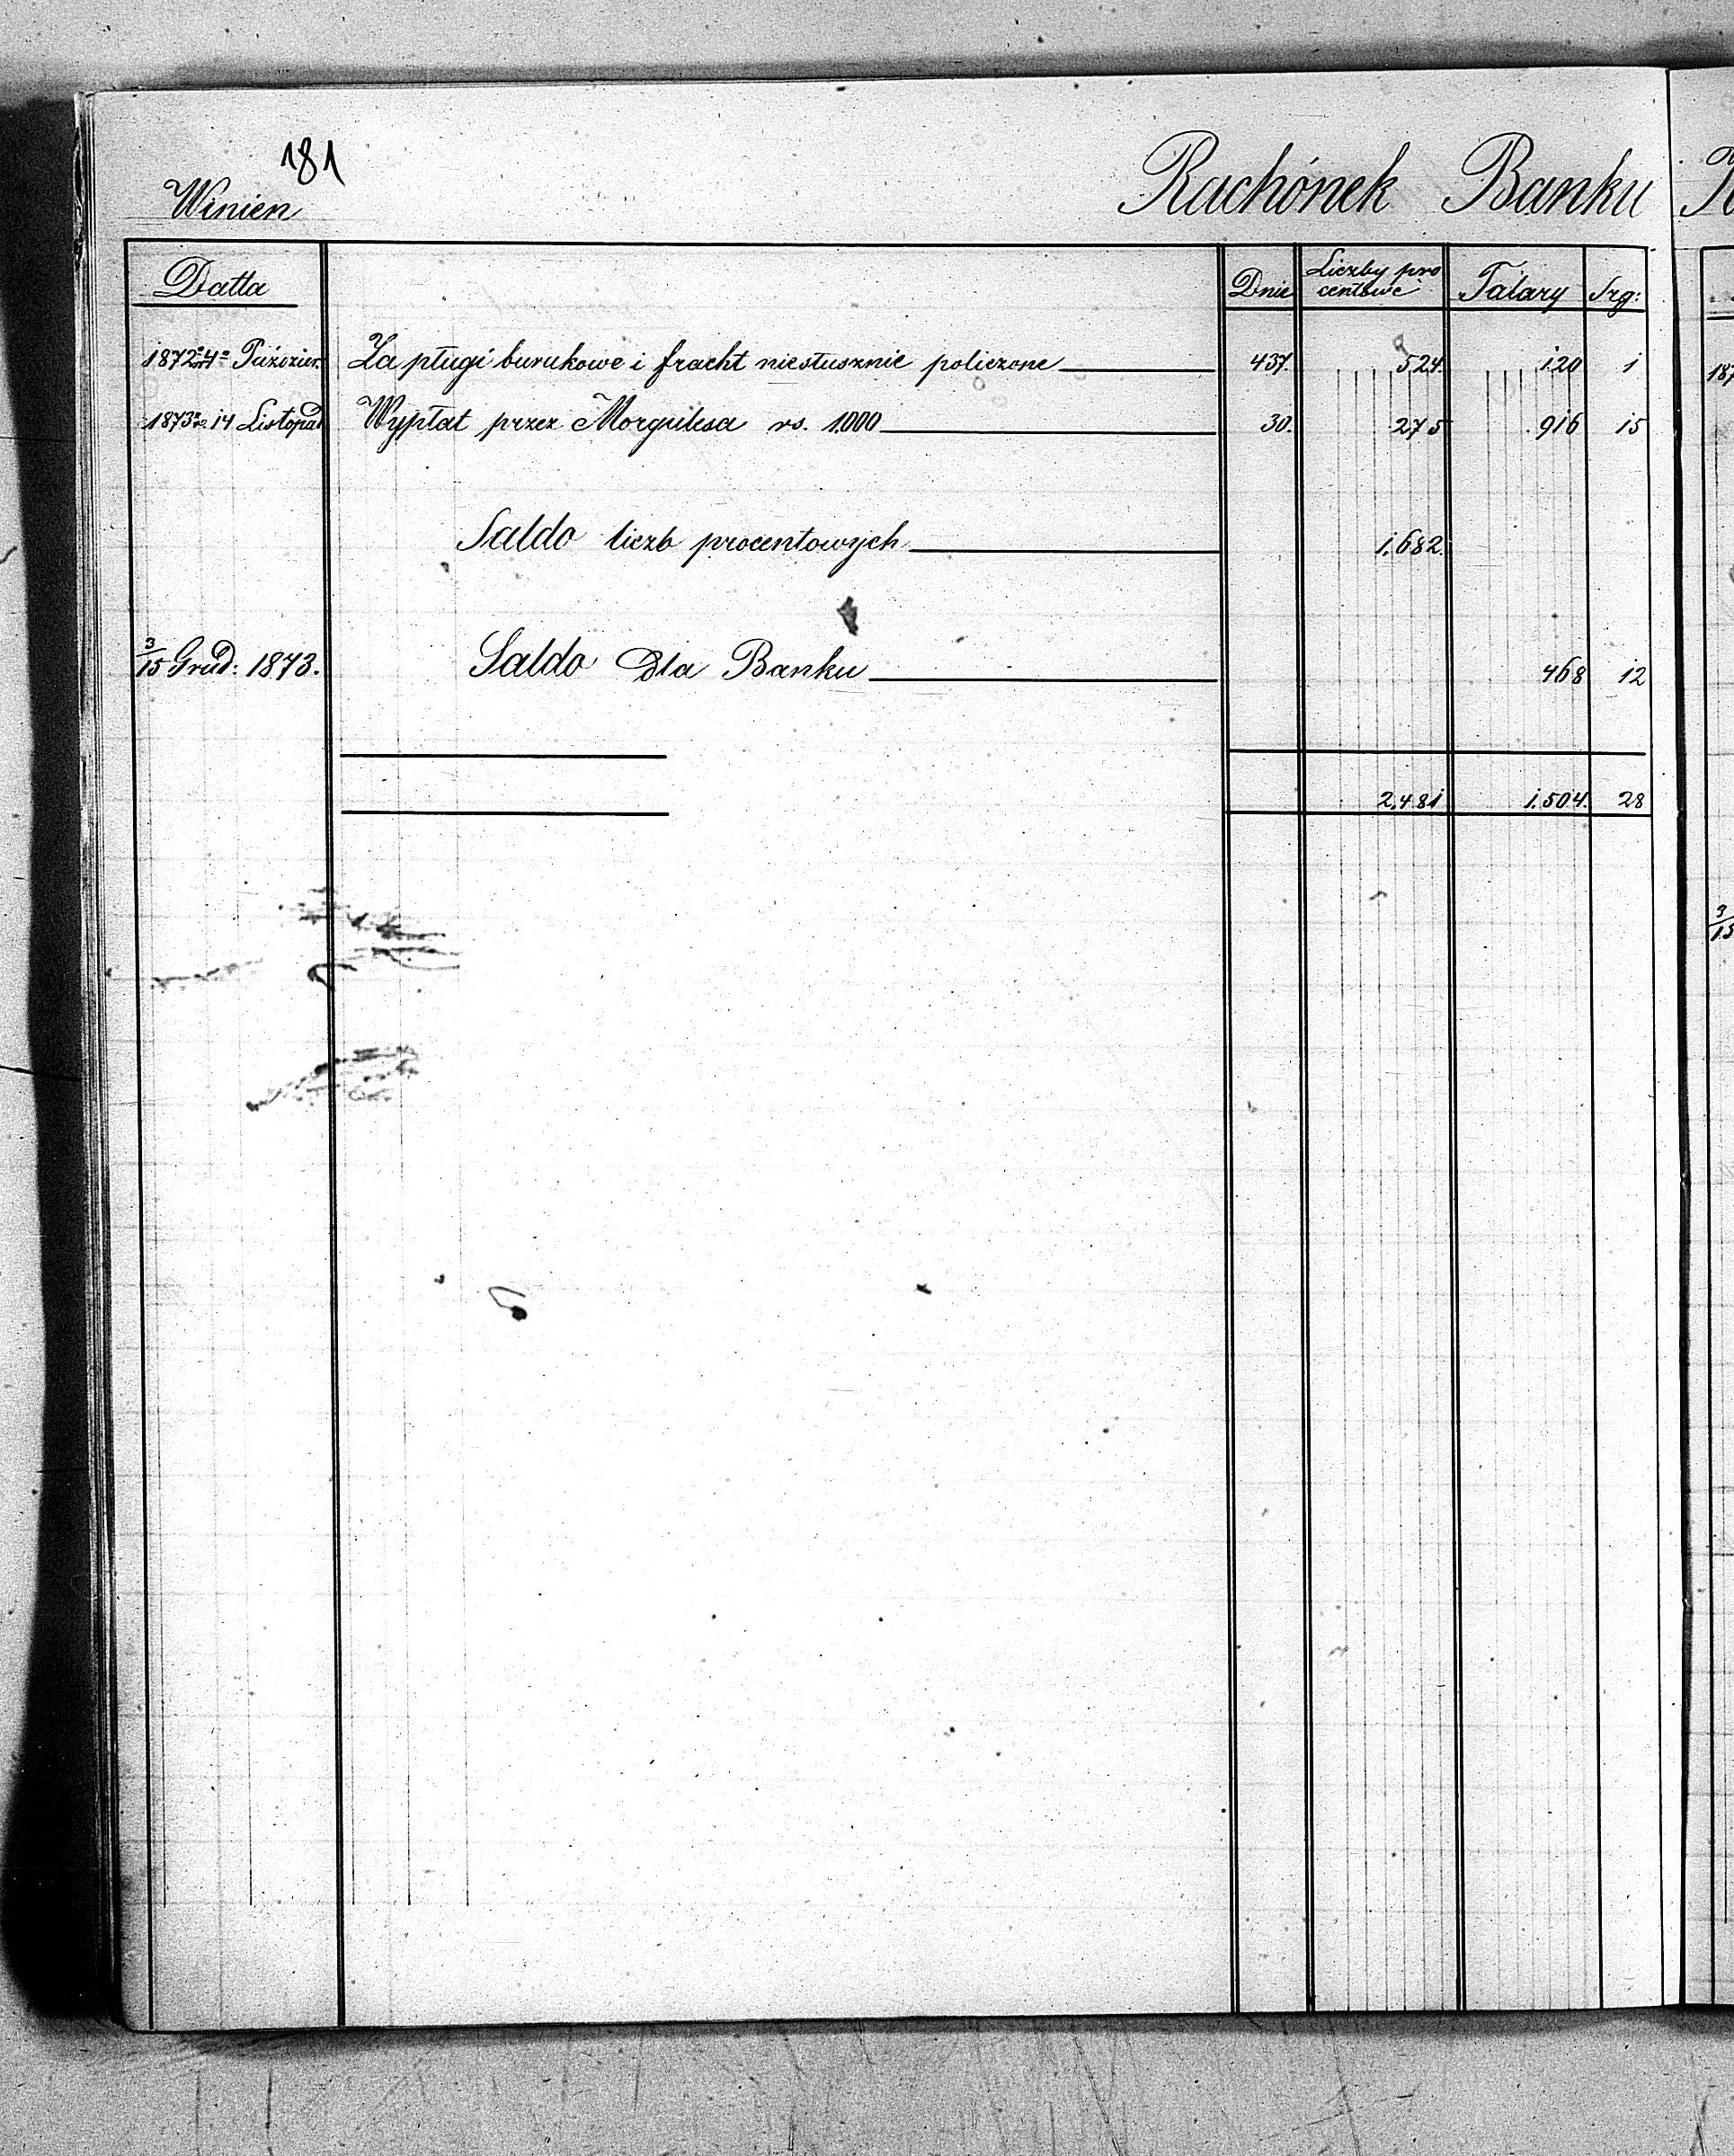 181
Winien Rachónek Banku
Datta Dnie Liczby pro centowe Talary Srg:
1872 4 Paździer. Za pługi burukowe i fracht niesłusznie policzone 437. 524. 120 1
1873 14 Listopad Wypłat przez Morgulesa rs. 1000 30. 275 916 15
Saldo liczb procentowych 1.682.
3/15 Grud: 1873. Saldo dla Banku 468 12
2,481 1.504. 28
187
3/15